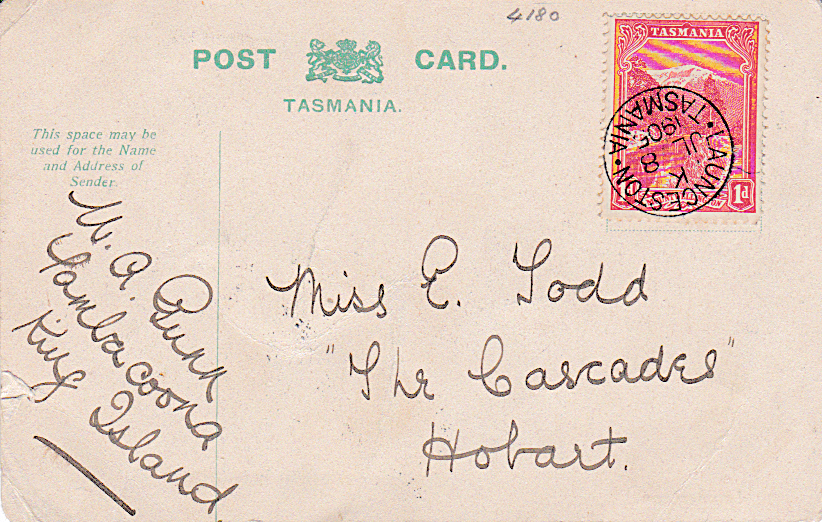 4180
POST CARD.
TASMANIA.
This space may be
used for the Name
and Address of
Sender.
TASMANIA
1d
LAUNCESTON · TASMANIA ·
K
8
JL
1905
M. A. Gunn
Yambacoona
King Island
Miss E. Todd
"The Cascades"
Hobart.